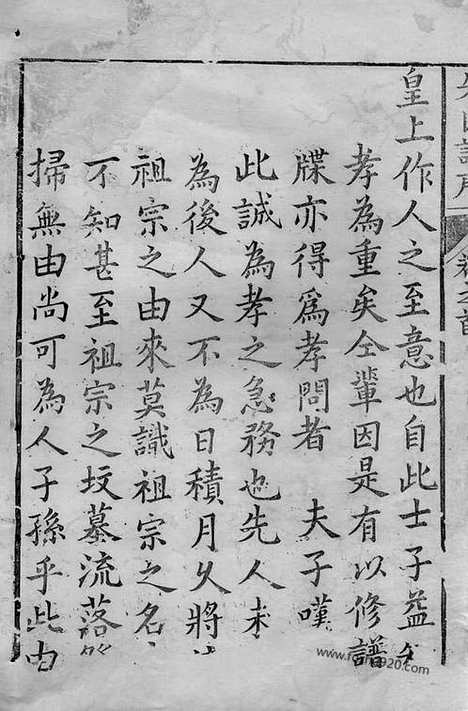 皇上作人之至意也自此士子益
孝為重矣仝輩因是有以修譜
牒亦得爲孝問者 夫子嘆
此誠為孝之急務也先人未
為後人又不為日積月乆將
祖宗之由來莫識祖宗之名
不知甚至祖宗之坟墓流落
掃無由尚可為人子孫乎此由